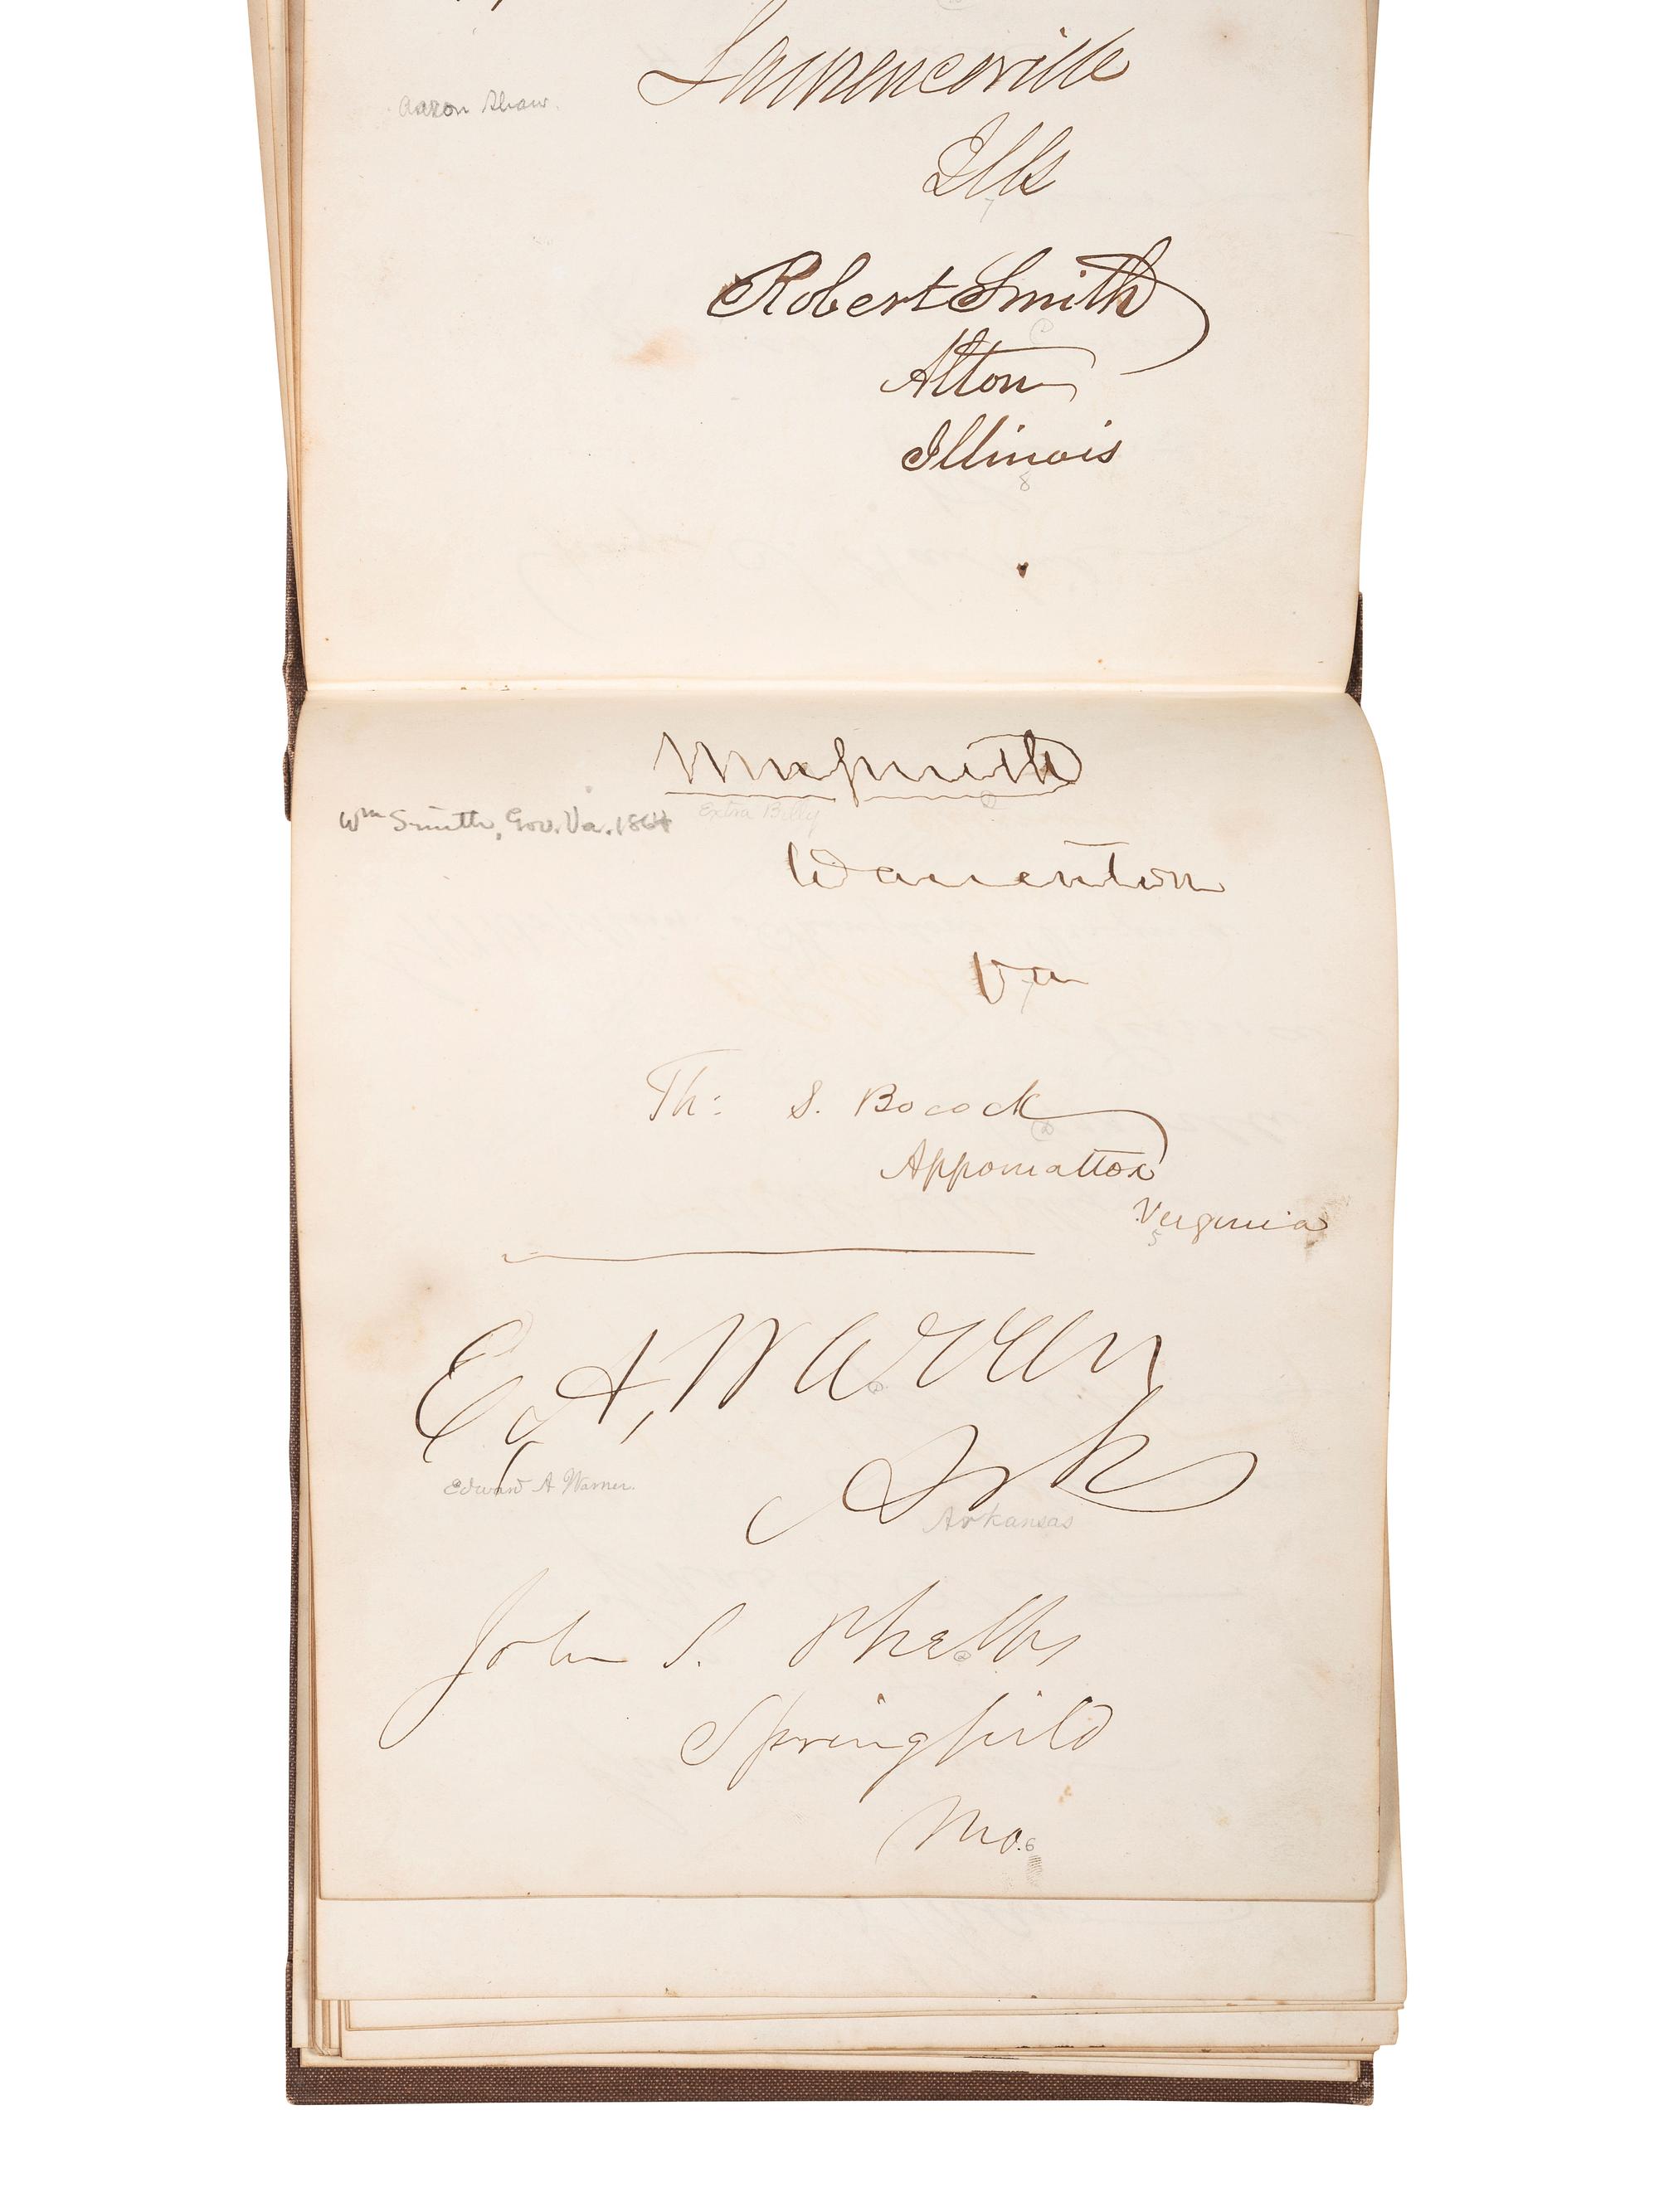 Lawrenceville
Aaron Shaw.
Ills
7
Robert Smith
Alton
Illinois
8
Wm Smith
Wm Smith, Gov. Va. 1864
Extra Billy
Warrenton
Va
7
Th: S. Bocock
Appomattox
Virginia
5
E. A. Warren
Edward A Warner.
Ark
Arkansas
John S. Phelps
Springfield
Mo.
6